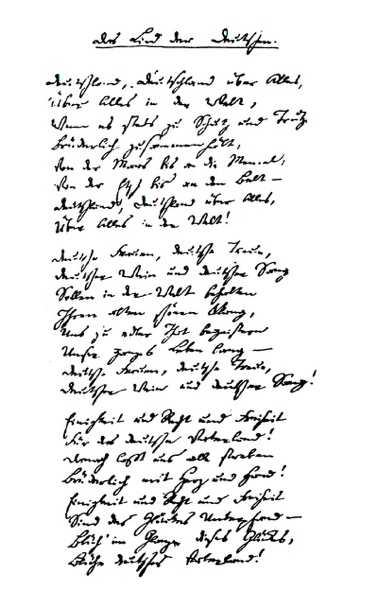 Das Lied der Deutschen.
Deutschland, Deutschland über Alles,
Über Alles in der Welt,
Wenn es stets zu Schutz und Trutze
Brüderlich zusammenhält,
Von der Maas bis an die Memel,
Von der Etsch bis an den Belt –
Deutschland, Deutschland über Alles,
Über Alles in der Welt!
Deutsche Frauen, deutsche Treue,
Deutscher Wein und deutscher Sang
Sollen in der Welt behalten
Ihren alten schönen Klang,
Uns zu edler That begeistern
Unser ganzes Leben lang –
Deutsche Frauen, deutsche Treue,
Deutscher Wein und deutscher Sang!
Einigkeit und Recht und Freiheit
Für das deutsche Vaterland!
Danach laßt uns alle streben
Brüderlich mit Herz und Hand!
Einigkeit und Recht und Freiheit
Sind des Glückes Unterpfand –
Blüh' im Glanze dieses Glückes,
Blühe deutsches Vaterland!